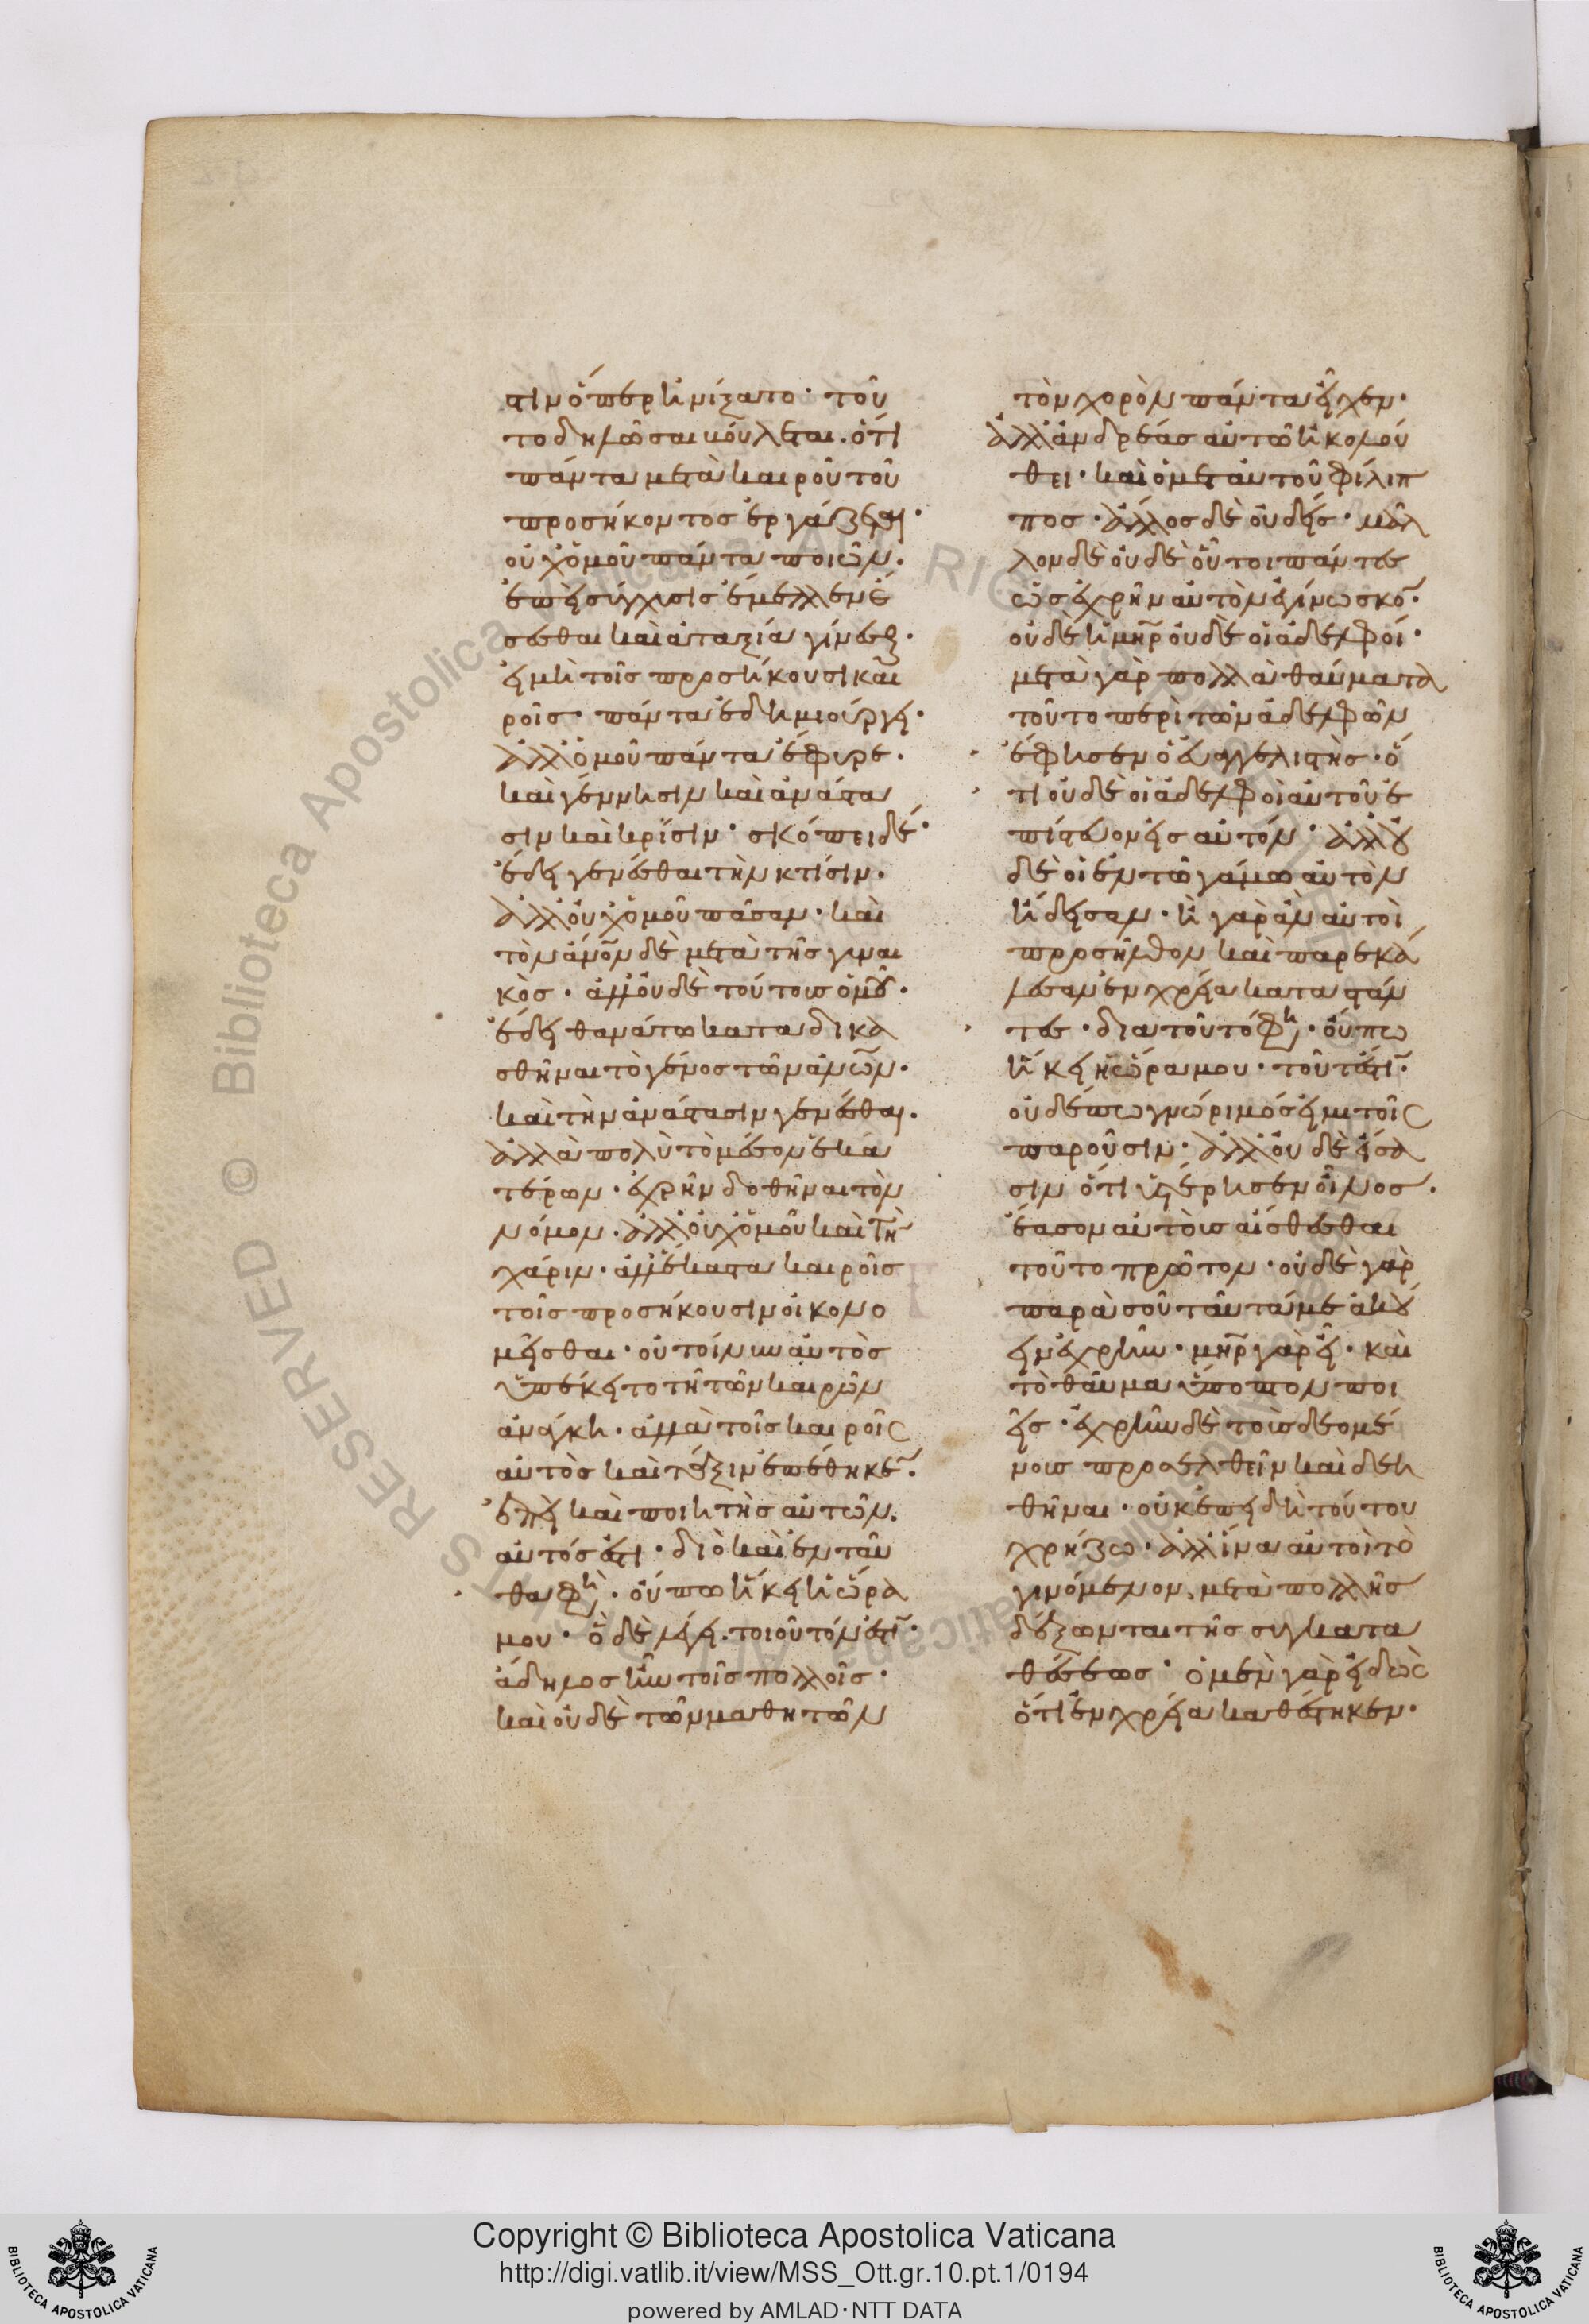 στιν ὅπερ ἠνίξατο· τοῦ
το δηλῶσαι βούλεται. ὅτι
πάντα μετὰ καιροῦ τοῦ
προσήκοντος ἐργάζεται·
οὐχ ὁμοῦ πάντα ποιῶν.
ἐπεὶ σύγχυσις ἔμελλεν ἔ
σεσθαι καὶ ἀταξία γίνεσθαι·
εἰ μὴ τοῖς προσήκουσι και
ροῖς πάντα ἐδημιούργει·
ἀλλ' ὁμοῦ πάντα ἔφυρε.
καὶ γέννησιν καὶ ἀνάστα
σιν καὶ κρίσιν· σκόπει δέ·
ἔδει γενέσθαι τὴν κτίσιν.
ἀλλ' οὐχ ὁμοῦ πᾶσαν· καὶ
τὸν ἄνον δὲ μετὰ τῆς γυναι
κὸς· ἀλλ' οὐδὲ τούτους ὁμοῦ.
ἔδει θανάτω καταδικα
σθῆναι τὸ γένος τῶν ἀνων.
καὶ τὴν ἀνάστασιν γενέσθαι.
ἀλλὰ πολὺ τὸ μέσον ἑκα
τέρων· ἐχρῆν δοθῆναι τὸν
νόμον. ἀλλ' οὐχ ὁμοῦ καὶ τὴν
χάριν· ἀλλ' ἕκαστα καιροῖς
τοῖς προσήκουσιν οἰκονο
μεῖσθαι· οὐ τοίνυν αὐτὸς
ὑπέκειτο τῆ τῶν καιρῶν
ἀνάγκη. ἀλλὰ τοῖς καιροῖς
αὐτὸς καὶ τάξιν ἐπέθηκεν.
ἐπεὶ καὶ ποιητὴς αὐτῶν.
αὐτός ἐστι· διὸ καὶ ἐνταῦ
θα φη· οὔπω ἥκει ἡ ὥρα
μου· ὃ δὲ λέγει. τοιοῦτόν ἐστι·
ἄδηλος ἦν τοῖς πολλοῖς·
καὶ οὐδὲ τῶν μαθητῶν
τὸν χορὸν πάντα εἶχεν·
ἀλλ' ἀνδρέας αὐτῶ ἠκολού
θει· καὶ ὁ μετ' αὐτοῦ φίλιπ
πος· ἄλλος δὲ οὐδείς· μᾶλ
λον δὲ οὐδὲ οὗτοι πάντες
ὡς ἐχρῆν αὐτὸν ἐγίνωσκον.
οὐδὲ ἡ μηρ οὐδὲ οἱ ἀδελφοί·
μετὰ γὰρ πολλὰ θαύματα
τοῦτο περὶ τῶν ἀδελφῶν
ἔφησεν ὁ εὐαγγελιστὴς· ὅ
τι οὐδὲ οἱ ἀδελφοὶ αὐτοῦ ἐ
πίστευον εἰς αὐτόν· ἀλλ' οὐ
δὲ οἱ ἐν τῶ γάμω αὐτὸν
ἤδεισαν· ἦ γὰρ ἂν αὐτοὶ
προσῆλθον καὶ παρεκά
λεσαν ἐν χρεία καταστάν
τες· διατοῦτό φη· οὔπω
ἥκει ἡ ὥρα μου· τουτέστι·
οὐδέπω γνώριμός εἰμι τοῖς
παροῦσιν· ἀλλ' οὐδὲ ἴσα
σιν ὅτι ὑστέρησεν οἶνος.
ἔασον αὐτοὺς αἰσθέσθαι
τοῦτο πρῶτον· οὐδὲ γὰρ
παρὰ σοῦ ταῦτά με ἀκού
ειν ἐχρῆν· μηρ γὰρ εἶ· καὶ
τὸ θαῦμα ὕποπτον ποι
εῖς· ἐχρῆν δὲ τοὺς δεομέ
νους προσελθεῖν καὶ δεη
θῆναι· οὐκ ἐπειδὴ τούτου
χρήζω· ἀλλ' ἵνα αὐτοὶ τὸ
γινόμενον, μετὰ πολλῆς
δέξωνται τῆς συγκατα
θέσεως· ὁ μὲν γὰρ εἰδὼς
ὅτι ἐν χρεία καθέστηκεν·
Copyright © Biblioteca Apostolica Vaticana
http://digi.vatlib.it/view/MSS_Ott.gr.10.pt.1/0194
powered by AMLAD·NTT DATA